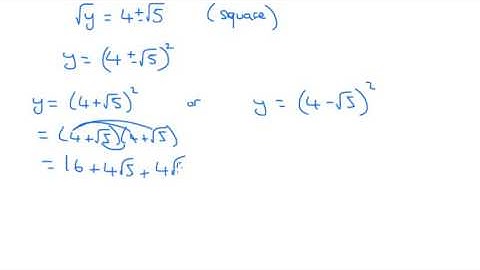 √y = 4±√5 (square)
y = (4 ± √5)²
y = (4+√5)² or y = (4-√5)²
= (4+√5)(4+√5)
= 16 + 4√5 + 4√5